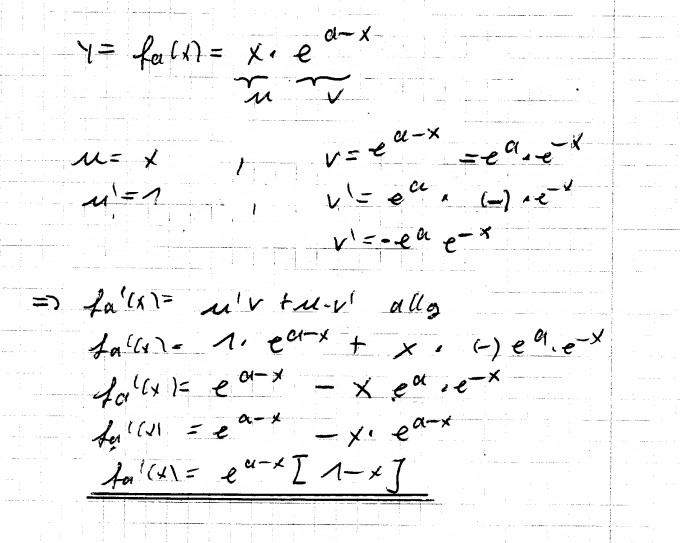 y = fa(x) = x · e^(a-x)
u v
u = x , v = e^(a-x) = e^a · e^(-x)
u' = 1 , v' = e^a · (-) · e^(-x)
v' = -e^a e^(-x)
=> fa'(x) = u'v + u·v' allg
fa'(x) = 1 · e^(a-x) + x · (-) e^a · e^(-x)
fa'(x) = e^(a-x) - x e^a · e^(-x)
fa'(x) = e^(a-x) - x · e^(a-x)
fa'(x) = e^(a-x) [ 1-x ]